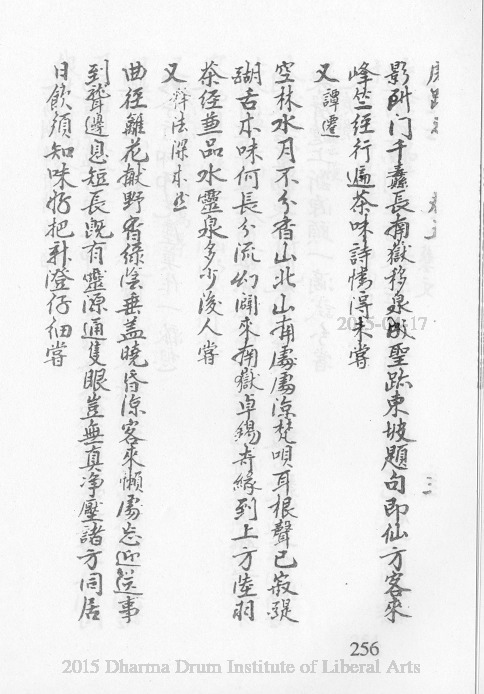 三
影门千長南嶽移泉成聖跡東坡題句即仙方客來
峰竺經行遍茶味詩情得未嘗
又 譚遷
空林水月不分香山北山南處處涼梵唄耳根聲已寂醍
醐舌本味何長分流幻闢來南嶽卓錫奇緣到上方陸羽
茶經品水靈泉多少後人嘗
又 釋法深本然
曲徑離花散野香綠陰垂蓋曉昏涼客來懶處忘迎送事
到聾邊息短長既有靈源通隻眼豈無真净壓諸方同居
日飲須知味好把新澄仔細嘗
256
2015-04-17
2015 Dharma Drum Institute of Liberal Arts